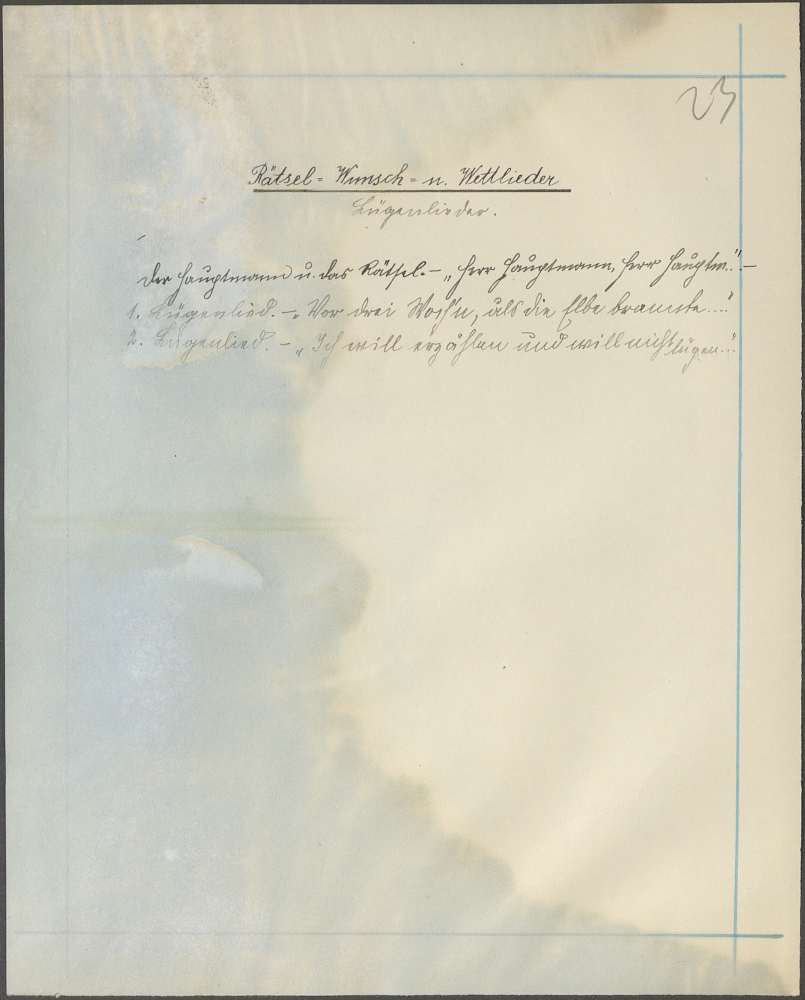 23
Rätsel- Wunsch- u. Wettlieder
Lügenlieder.
Der Hauptmann u. das Rätsel. – „Herr Hauptmann, Herr Hauptm..." –
1. Lügenlied. – „Vor drei Woch'n, als die Elbe brannte...."
2. Lügenlied. – „Ich will erzählen und will nicht lügen..."